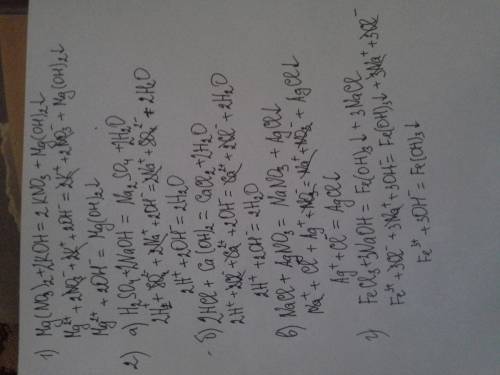 1) Mg(NO₃)₂ + 2KOH = 2KNO₃ + Mg(OH)₂↓
Mg²⁺ + 2NO₃⁻ + 2K⁺ + 2OH⁻ = 2K⁺ + 2NO₃⁻ + Mg(OH)₂↓
Mg²⁺ + 2OH⁻ = Mg(OH)₂↓
2) а) H₂SO₄ + 2NaOH = Na₂SO₄ + 2H₂O
2H⁺ + SO₄²⁻ + 2Na⁺ + 2OH⁻ = 2Na⁺ + SO₄²⁻ + 2H₂O
2H⁺ + 2OH⁻ = 2H₂O
б) 2HCl + Ca(OH)₂ = CaCl₂ + 2H₂O
2H⁺ + 2Cl⁻ + Ca²⁺ + 2OH⁻ = Ca²⁺ + 2Cl⁻ + 2H₂O
2H⁺ + 2OH⁻ = 2H₂O
в) NaCl + AgNO₃ = NaNO₃ + AgCl↓
Na⁺ + Cl⁻ + Ag⁺ + NO₃⁻ = Na⁺ + NO₃⁻ + AgCl↓
Ag⁺ + Cl⁻ = AgCl↓
г) FeCl₃ + 3NaOH = Fe(OH)₃↓ + 3NaCl
Fe³⁺ + 3Cl⁻ + 3Na⁺ + 3OH⁻ = Fe(OH)₃↓ + 3Na⁺ + 3Cl⁻
Fe³⁺ + 3OH⁻ = Fe(OH)₃↓